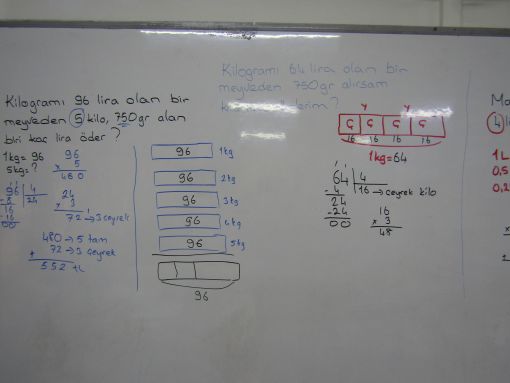 Kilogramı 96 lira olan bir
meyveden 5 kilo, 750gr alan
biri kaç lira öder ?
1kg = 96
5kg = ?
96
x 5
480
96 4
-8 24
16
-16
00
24
x 3
72 → 3 çeyrek
480 → 5 tam
72 → 3 çeyrek
+
552 TL
96 1kg
96 2kg
96 3kg
96 4kg
96 5kg
96
Kilogramı 64 lira olan bir
meyveden 750gr alırsam
?
Y Y
Ç Ç Ç Ç
16 16 16 16
1kg = 64
64 4
-4 16 → çeyrek kilo
24
-24
00
16
x 3
48
Ma
4 li
1 L
0,5
0,2
x
+